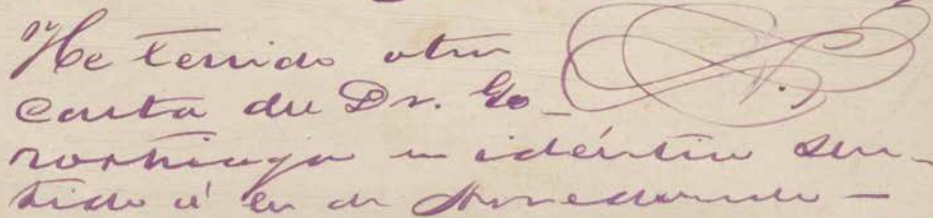 He tenido otra
carta del Dr. Go-
rostiaga en idéntico sen-
tido á la de